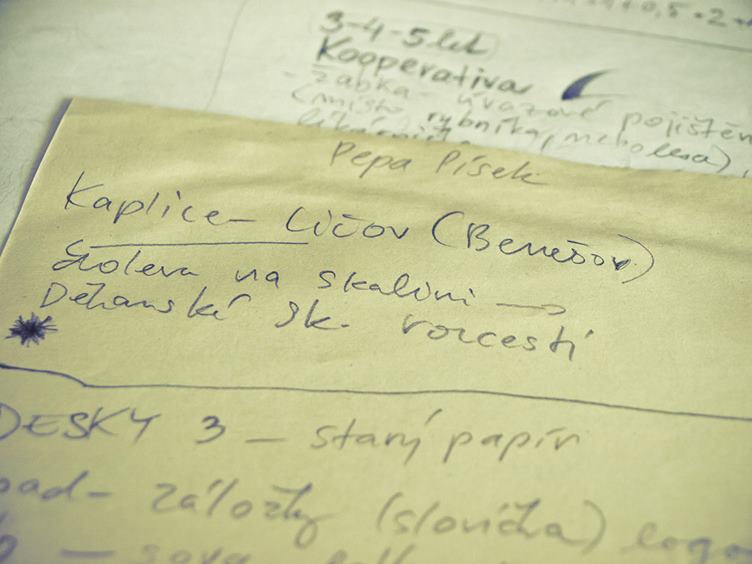 0,5 · 2
3-4-5 let
Kooperativa
- žabka - úvazové pojištěn
(místo rybníka, nebo lesa),
Pepa Písek
Kaplice - Ličov (Benešov)
zleva na skalini →
Děkanské sk. rozcestí
DESKY 3 - starý papír
pad - záložky (slovíčka) logo
- sova